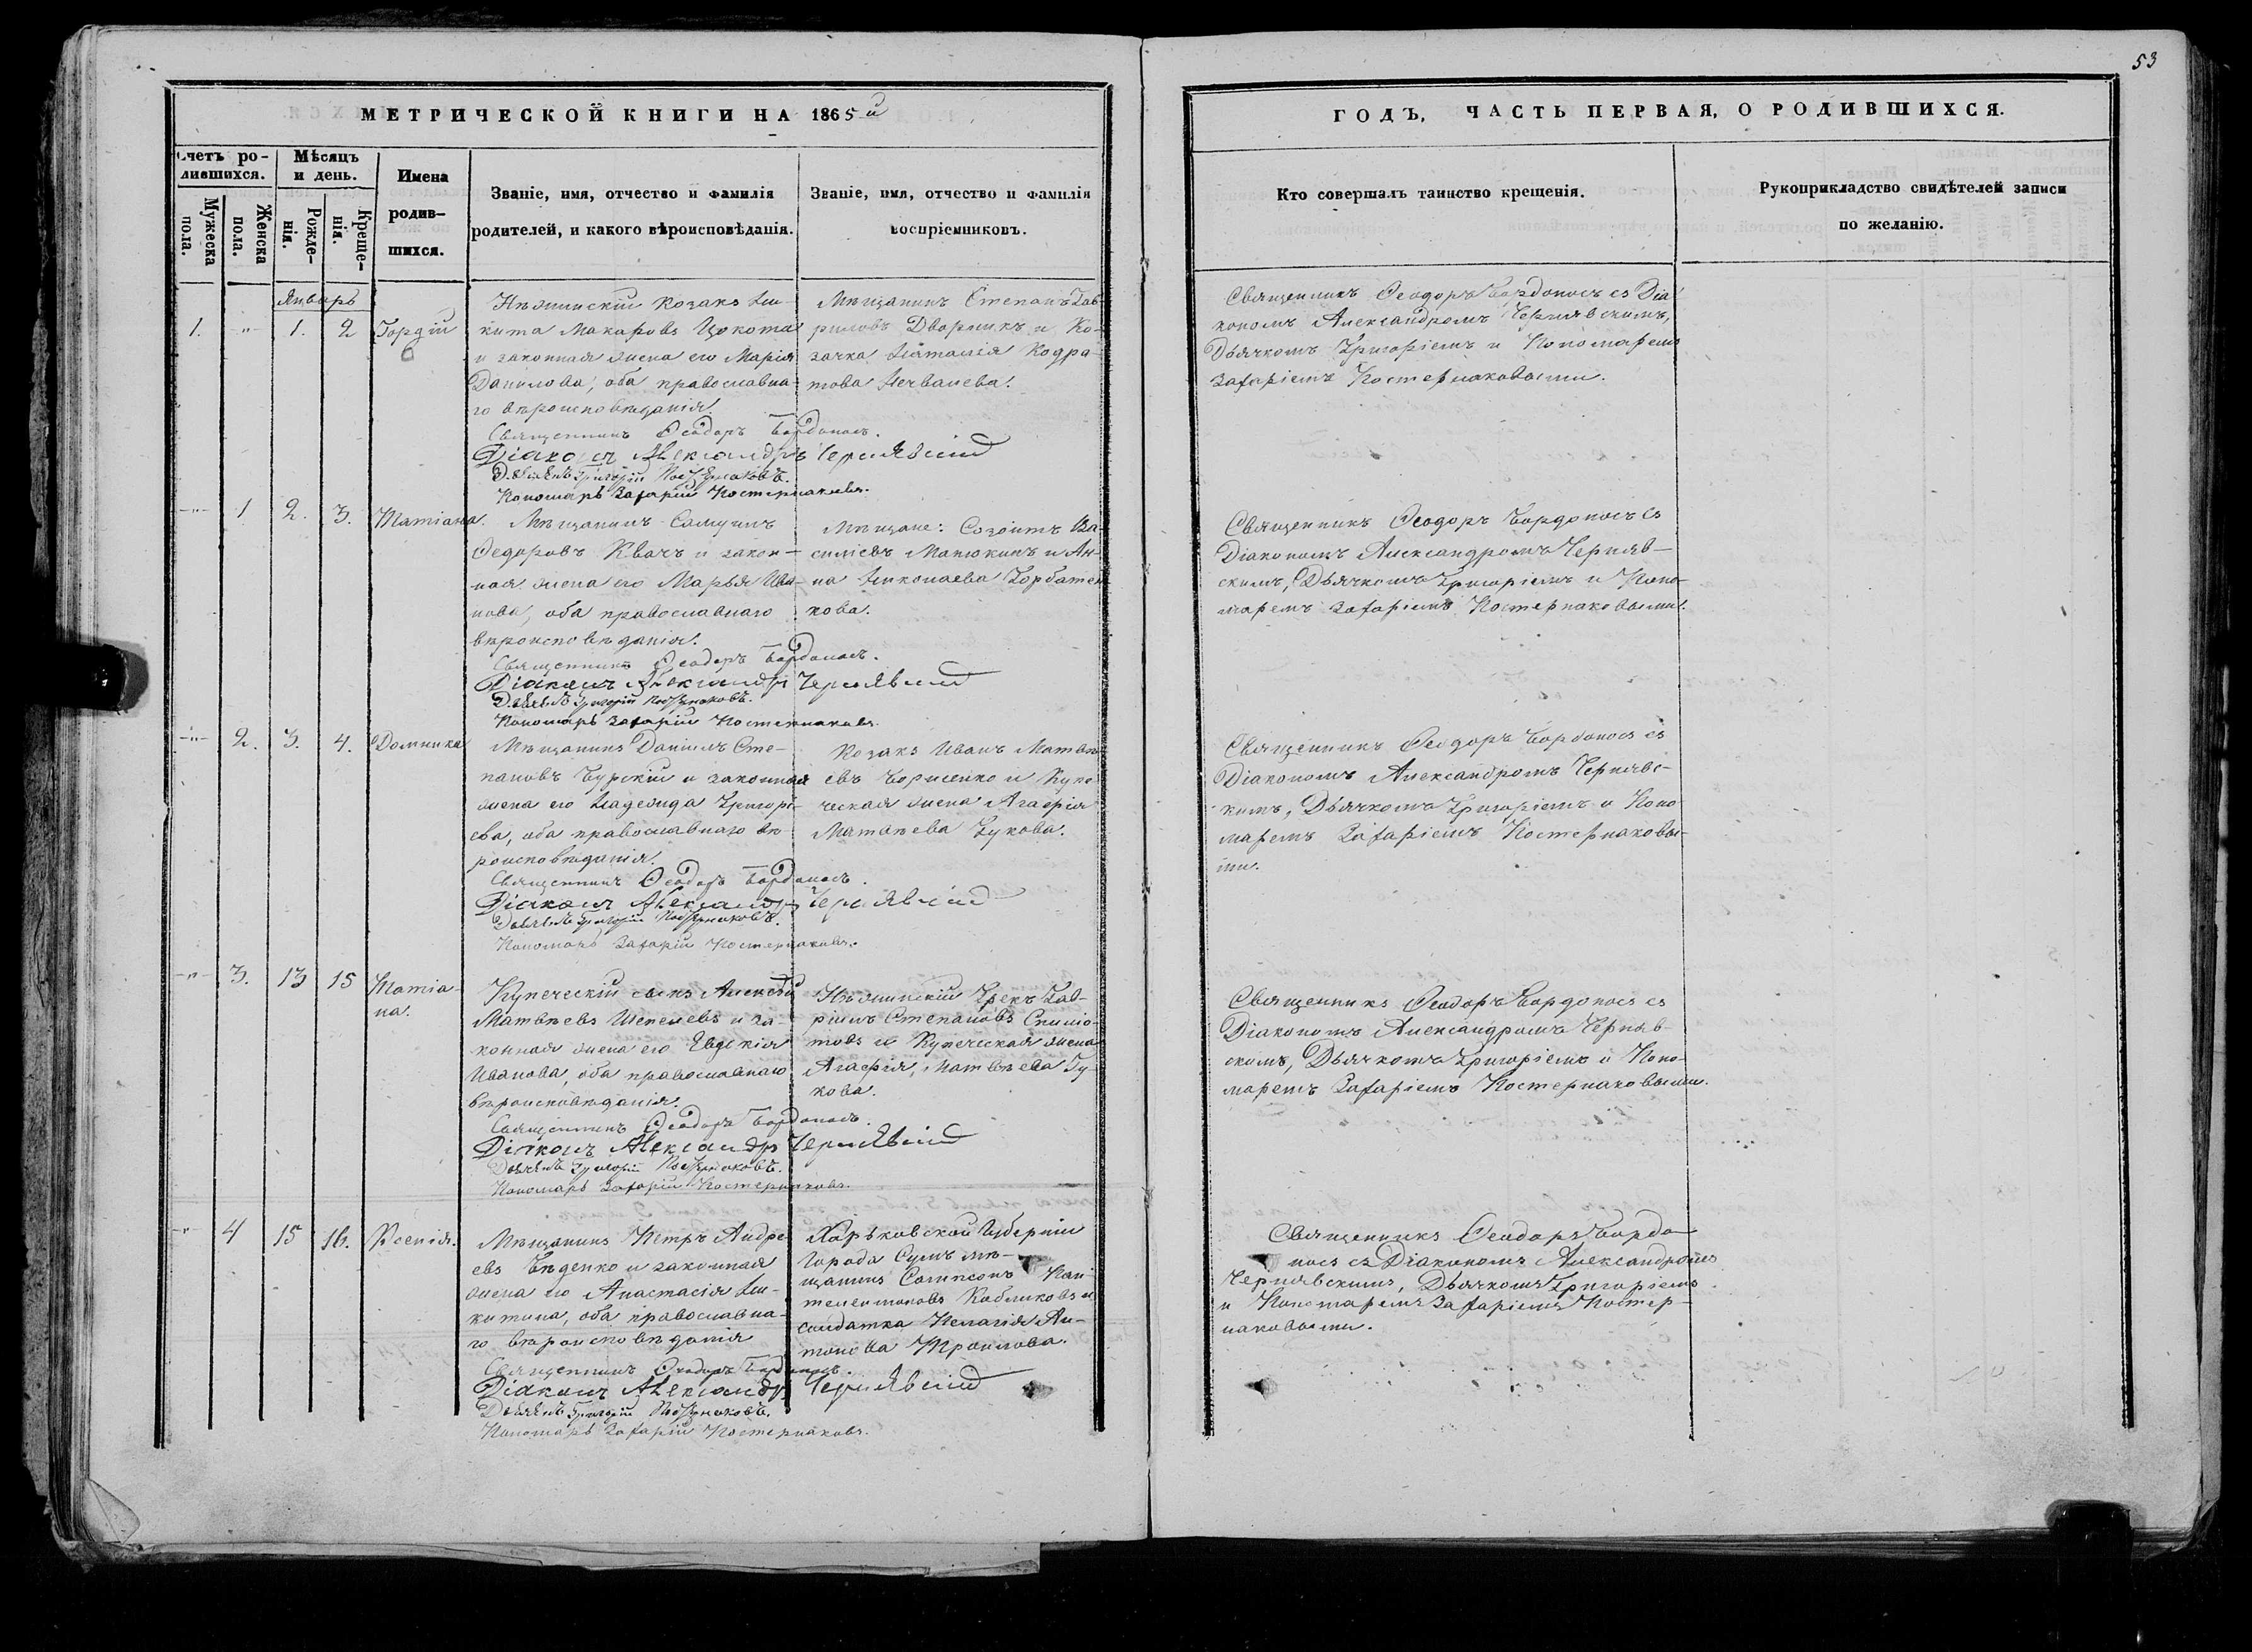 53
МЕТРИЧЕСКОЙ КНИГИ НА 1865й
ГОДЪ, ЧАСТЬ ПЕРВАЯ, О РОДИВШИХСЯ.
Счетъ ро-
дившихся.
Мужеска
пола.
Женска
пола.
Мѣсяцъ
и день.
Рожде-
нія.
Креще-
нія.
Имена
родив-
шихся.
Званіе, имя, отчество и фамилія
родителей, и какого вѣроисповѣданія.
Званіе, имя, отчество и фамилія
воспріемниковъ.
Кто совершалъ таинство крещенія.
Рукоприкладство свидѣтелей записи
по желанію.
Январь
1. " 1. 2 Гордій
Нѣжинскій козакъ Ни-
кита Макаровъ Цокота
и законная жена его Марія
Данилова, оба православна-
го вѣроисповѣданія.
Священникъ Ѳеодоръ Бордоносъ.
Діаконъ Александръ Чернявскій
Дьячекъ Григорій Костернаковъ.
Пономарь Захарій Костернаковъ.
Мѣщанинъ Степанъ Гав-
риловъ Дворникъ и Ко-
зачка Наталія Кодра-
това
Священникъ Ѳеодоръ Бордоносъ съ Діа-
кономъ Александромъ Чернявскимъ,
Дьячкомъ Григоріемъ и Пономаремъ
Захаріемъ Костернаковыми.
-"- 1 2. 3. Татіана.
Мѣщанинъ Самуилъ
Ѳедоровъ Квачъ и закон-
ная жена его Марья Ива-
нова, оба православнаго
вѣроисповѣданія.
Священникъ Ѳеодоръ Бордоносъ.
Діаконъ Александръ Чернявскій
Дьячекъ Григорій Костернаковъ.
Пономарь Захарій Костернаковъ.
Мѣщане: Созонтъ Ва-
силіевъ Манюкинъ и Ан-
на Николаева Горбатен-
кова.
Священникъ Ѳеодоръ Бордоносъ съ
Діакономъ Александромъ Черняв-
скимъ, Дьячкомъ Григоріемъ и Поно-
маремъ Захаріемъ Костернаковыми.
-"- 2. 3. 4. Домника
Мѣщанинъ Даніилъ Сте-
пановъ Бурскій и законная
жена его Надежда Григорі-
ева, оба православнаго вѣ-
роисповѣданія.
Священникъ Ѳеодоръ Бордоносъ.
Діаконъ Александръ Чернявскій
Дьячекъ Григорій Костернаковъ.
Пономарь Захарій Костернаковъ.
Козакъ Иванъ Матвѣ-
евъ Борисенко и Купе-
ческая жена Агафія
Матвѣева Гукова.
Священникъ Ѳеодоръ Бордоносъ съ
Діакономъ Александромъ Чернявс-
кимъ, Дьячкомъ Григоріемъ и Поно-
маремъ Захаріемъ Костернаковы-
ми.
-"- 3. 13 15 Татіа-
на.
Купеческій сынъ Алексѣй
Матвѣевъ Шепелевъ и за-
конная жена его Евдокія
Иванова, оба православнаго
вѣроисповѣданія.
Священникъ Ѳеодоръ Бордоносъ.
Діаконъ Александръ Чернявскій
Дьячекъ Григорій Костернаковъ.
Пономарь Захарій Костернаковъ.
Нѣжинскій Грекъ Гав-
ріилъ Степановъ Спиліо-
товъ и Купеческая жена
Агафія Матвѣева Гу-
кова.
Священникъ Ѳеодоръ Бордоносъ съ
Діакономъ Александромъ Черняв-
скомъ, Дьячкомъ Григоріемъ и Поно-
маремъ Захаріемъ Костернаковыми.
-"- 4 15 16. Ксенія.
Мѣщанинъ Петръ Андре-
евъ Бѣденко и законная
жена его Анастасія Ни-
китина, оба православна-
го вѣроисповѣданія
Священникъ Ѳеодоръ Бордоносъ.
Діаконъ Александръ Чернявскій
Дьячекъ Григорій Костернаковъ.
Пономарь Захарій Костернаковъ.
Харьковской Губерніи
Города Сумъ мѣ-
щанинъ Сампсонъ Пан-
телеимоновъ Кобликовъ и
солдатка Пелагія Ан-
тонова Троилова.
Священникъ Ѳеодоръ Бордо-
носъ съ Діакономъ Александромъ
Чернявскимъ, Дьячкомъ Григоріемъ
и Пономаремъ Захаріемъ Костер-
наковыми.